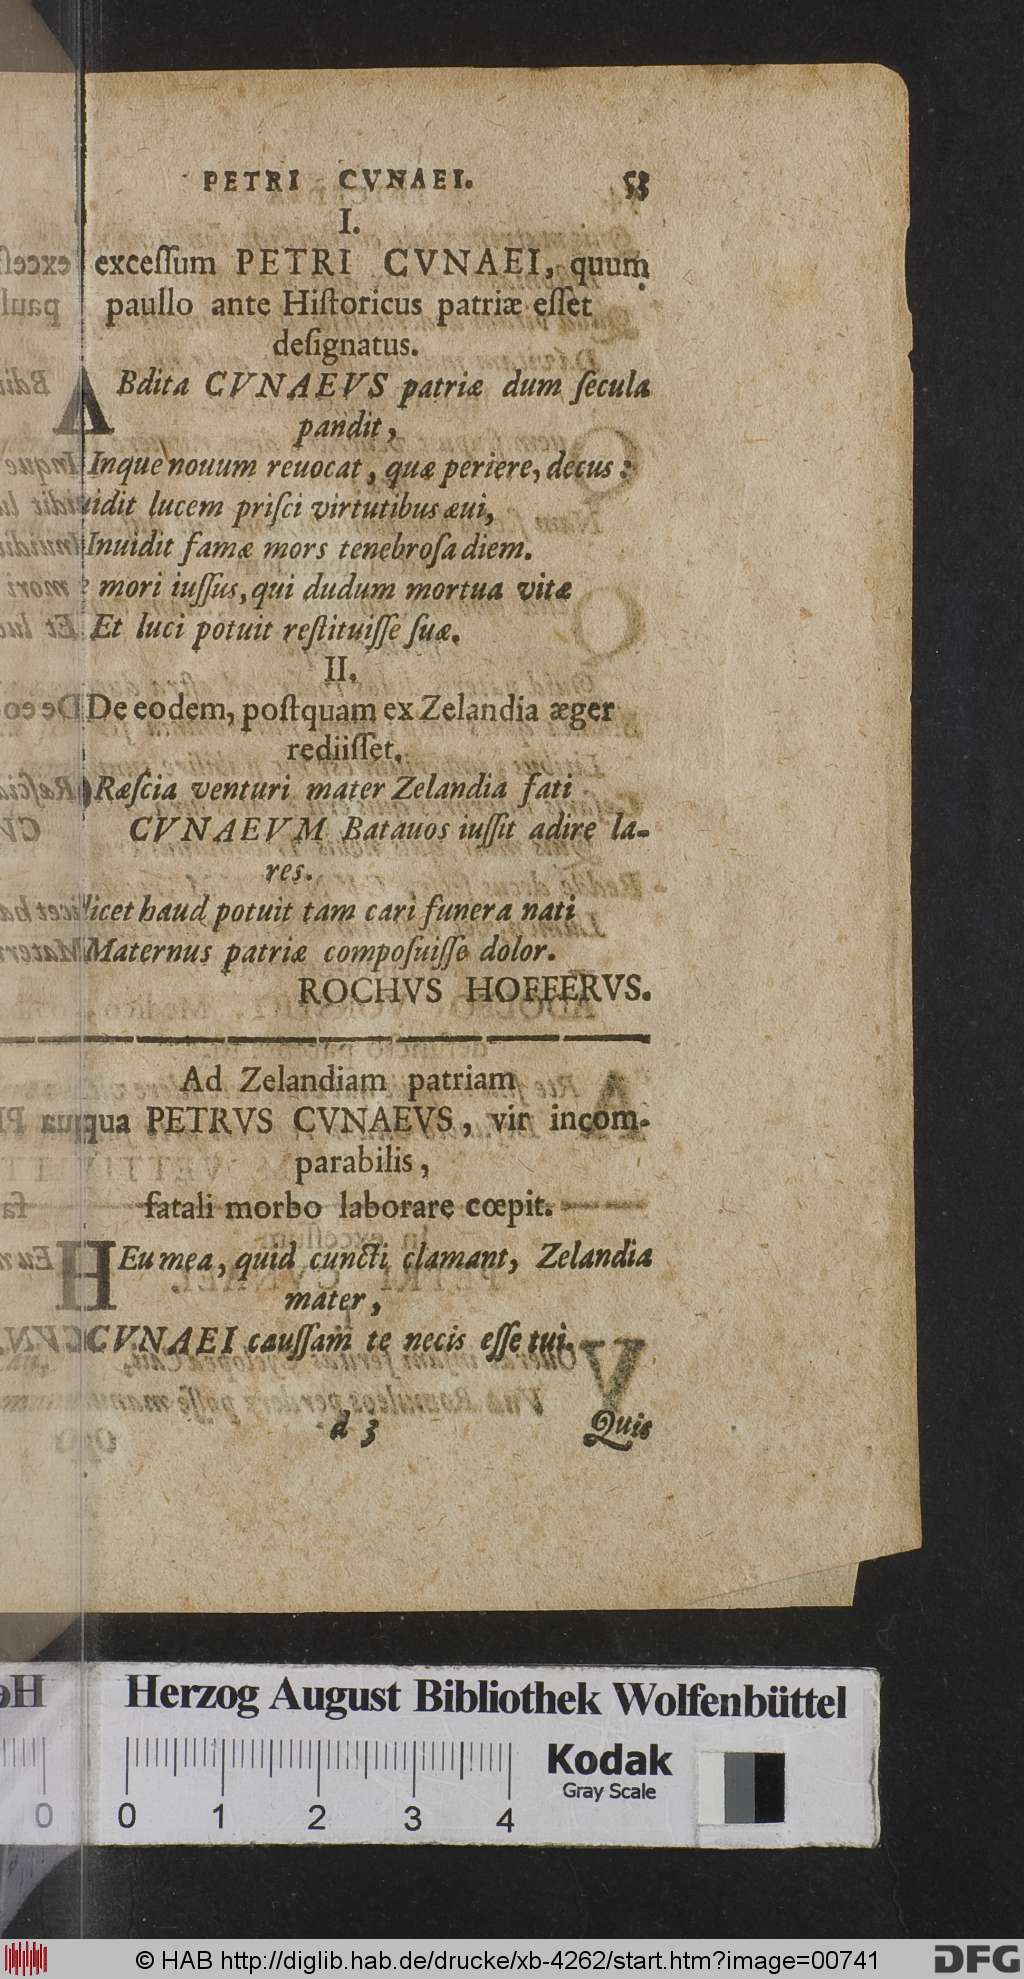 PETRI CVNAEI. 53
I.
exceſſum PETRI CVNAEI, quum
paullo ante Hiſtoricus patriæ eſſet
deſignatus.
ABdita CVNAEVS patriæ dum ſecula
pandit,
Inque nouum reuocat, quæ periere, decus:
uidit lucem priſci virtutibus æui,
Inuidit famæ mors tenebroſa diem.
mori iuſſus, qui dudum mortua vitæ
Et luci potuit reſtituiſſe ſuæ.
II.
De eodem, poſtquam ex Zelandia æger
rediiſſet.
Ræſcia venturi mater Zelandia fati
CVNAEVM Batauos iuſſit adire la-
res.
licet haud potuit tam cari funera nati
Maternus patriæ compoſuiſſe dolor.
ROCHVS HOFFERVS.
Ad Zelandiam patriam
qua PETRVS CVNAEVS, vir incom-
parabilis,
fatali morbo laborare cœpit.
HEu mea, quid cuncti clamant, Zelandia
mater,
CVNAEI cauſſam te necis eſſe tui.
d 3 Quis
Herzog August Bibliothek Wolfenbüttel
Kodak
Gray Scale
0 0 1 2 3 4
© HAB http://diglib.hab.de/drucke/xb-4262/start.htm?image=00741 DFG